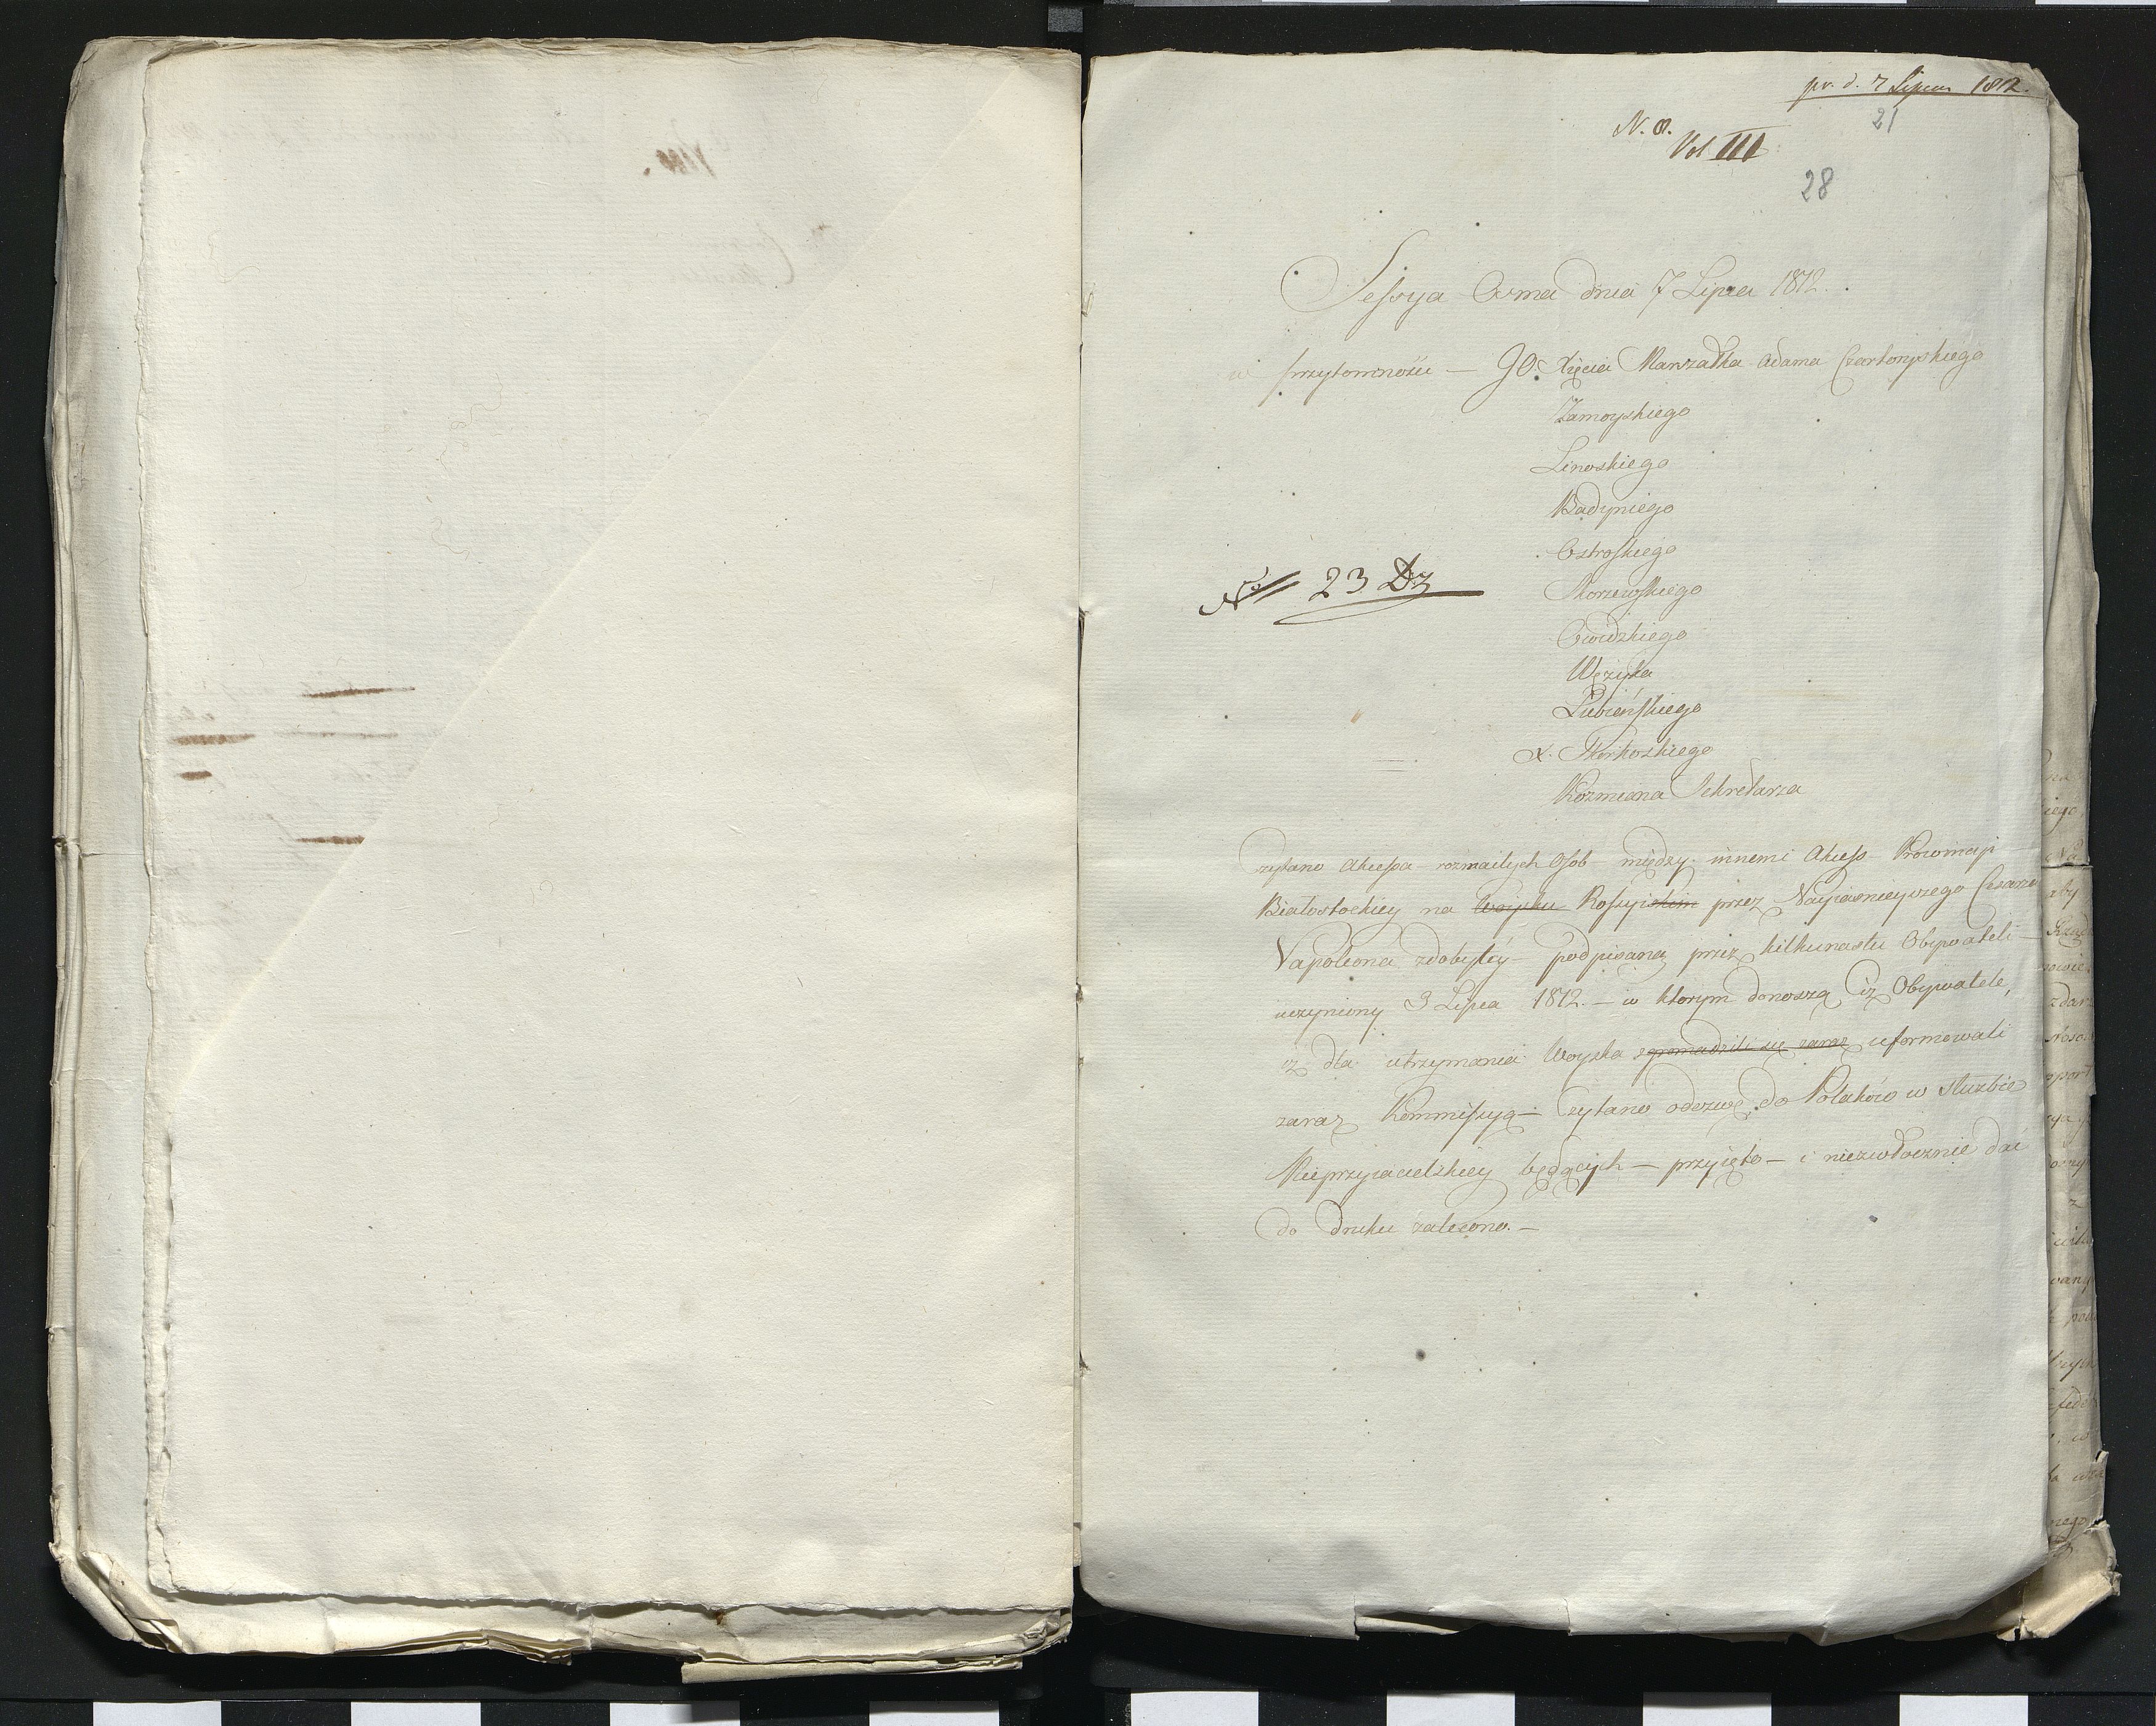 pr. d. 7 Lipca 1812.
21
N. 8.
Vol III
28
Sessya Osma dnia 7 Lipca 1812.
w przytomności — JO. Xięcia Marszałka Adama Czartoryskiego
Zamoyskiego
Linoskiego
Badyniego
Ostroskiego
No 23 Dz
Skorzewskiego
Gwidzkiego
Wężyka
Łubieńskiego
X. Skorkoskiego
Kozmiana Sekretarza
Czytano Akcessa rozmaitych Osob między innemi Akcess Prowincyi
Białostockiey na woysku Rossyiskim przez Nayiasnieyszego Cesarza
Napoleona zdobytey — podpisaną przez kilkunastu Obywateli —
uczyniony 3 Lipca 1812. — w ktorym donoszą iż Obywatele,
iż dla utrzymania Woyska zgromadzili się zaraz uformowali
zaraz Kommissyą — Czytano odezwę do Polaków w służbie
Nieprzyiacielskiey będących — przyięto — i niezwłocznie dać
do druku zalecono. —